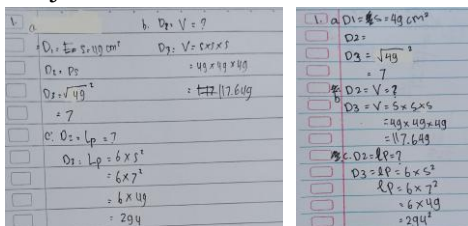 1. a
D1 = s = 49 cm²
D2 = Ds
D3 = √49²
= 7
b. D2 = V = ?
D3 = V = s x s x s
= 49 x 49 x 49
= 117.649
c. D2 = Lp = ?
D3 = Lp = 6 x s²
= 6 x 7²
= 6 x 49
= 294
1. a D1 = s = 49 cm²
D2 =
D3 = √49²
= 7
b D2 = V = ?
D3 = V = s x s x s
= 49 x 49 x 49
= 117.649
c. D2 = lP = ?
D3 = lP = 6 x s²
lP = 6 x 7²
= 6 x 49
= 294²